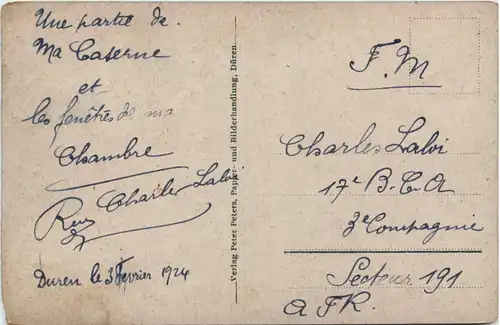 Une partie de
Ma Caserne
et
les fenêtrés de ma
Chambre
Charles Laloi
Duren le 3 Fevrier 1924
Verlag Peter Peters, Papier- und Bilderhandlung, Düren.
F. M
Charles Laloi
17e B. C. A
3e Compagnie
Secteur 191
A F R.